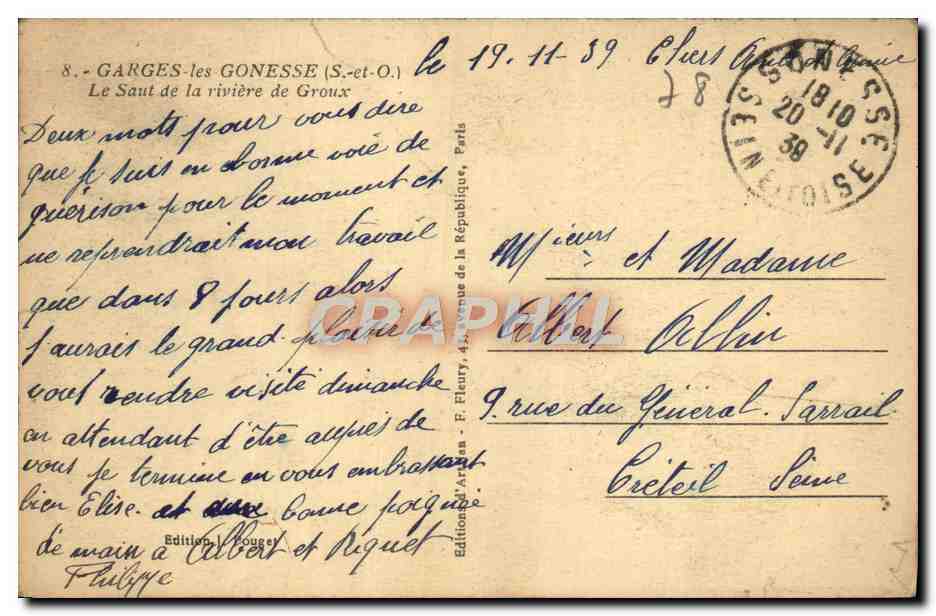 8. - GARGES-les GONESSE (S.-et-O.)
Le Saut de la rivière de Groux
le 19-11-39 Chers
78
GONESSE
18 10
20 -11
39
SEINE-ET-OISE
Deux mots pour vous dire
que je suis en bonne voie de
guérison pour le moment et
ne reprendrait mon travail
que dans 8 jours alors
j'aurais le grand plaisir de
vous rendre visite dimanche
en attendant d'être auprès de
vous je termine en vous embrassant
bien Elise et bonne poignée
de main à Albert et Riquet
Philippe
Edition L. Pouget
Editions d'Art - F. Fleury, 41, avenue de la République, Paris
CRAPHIL
Mieurs et Madame
Albert Allin
9. rue du Général. Sarrail
Créteil Seine